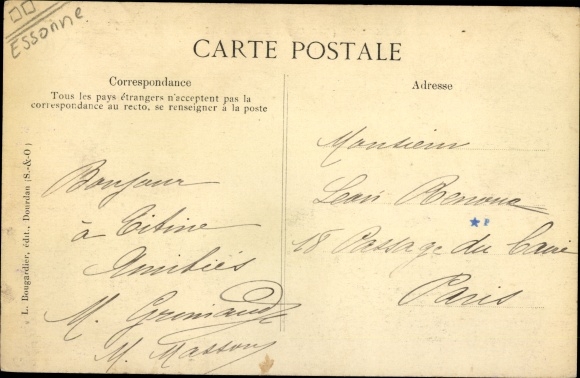 Essonne
CARTE POSTALE
Correspondance
Tous les pays étrangers n'acceptent pas la
correspondance au recto, se renseigner à la poste
Bonjour
à Titine
Amitiés
M. Grimaud
M. Masson
L. Bougardier, édit., Dourdan (S.-&-O)
Adresse
Monsieur
Léon
18 Passage du Caire
Paris